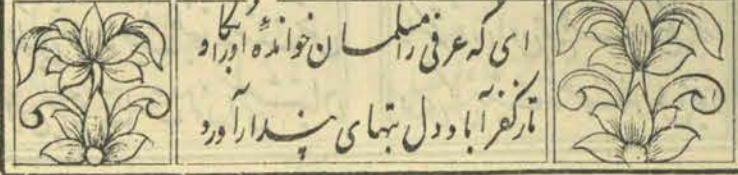 ای که عرفی را مسلمان خوانده او را کاو
تا ز کفر آباد دل بتهای پندار آورد